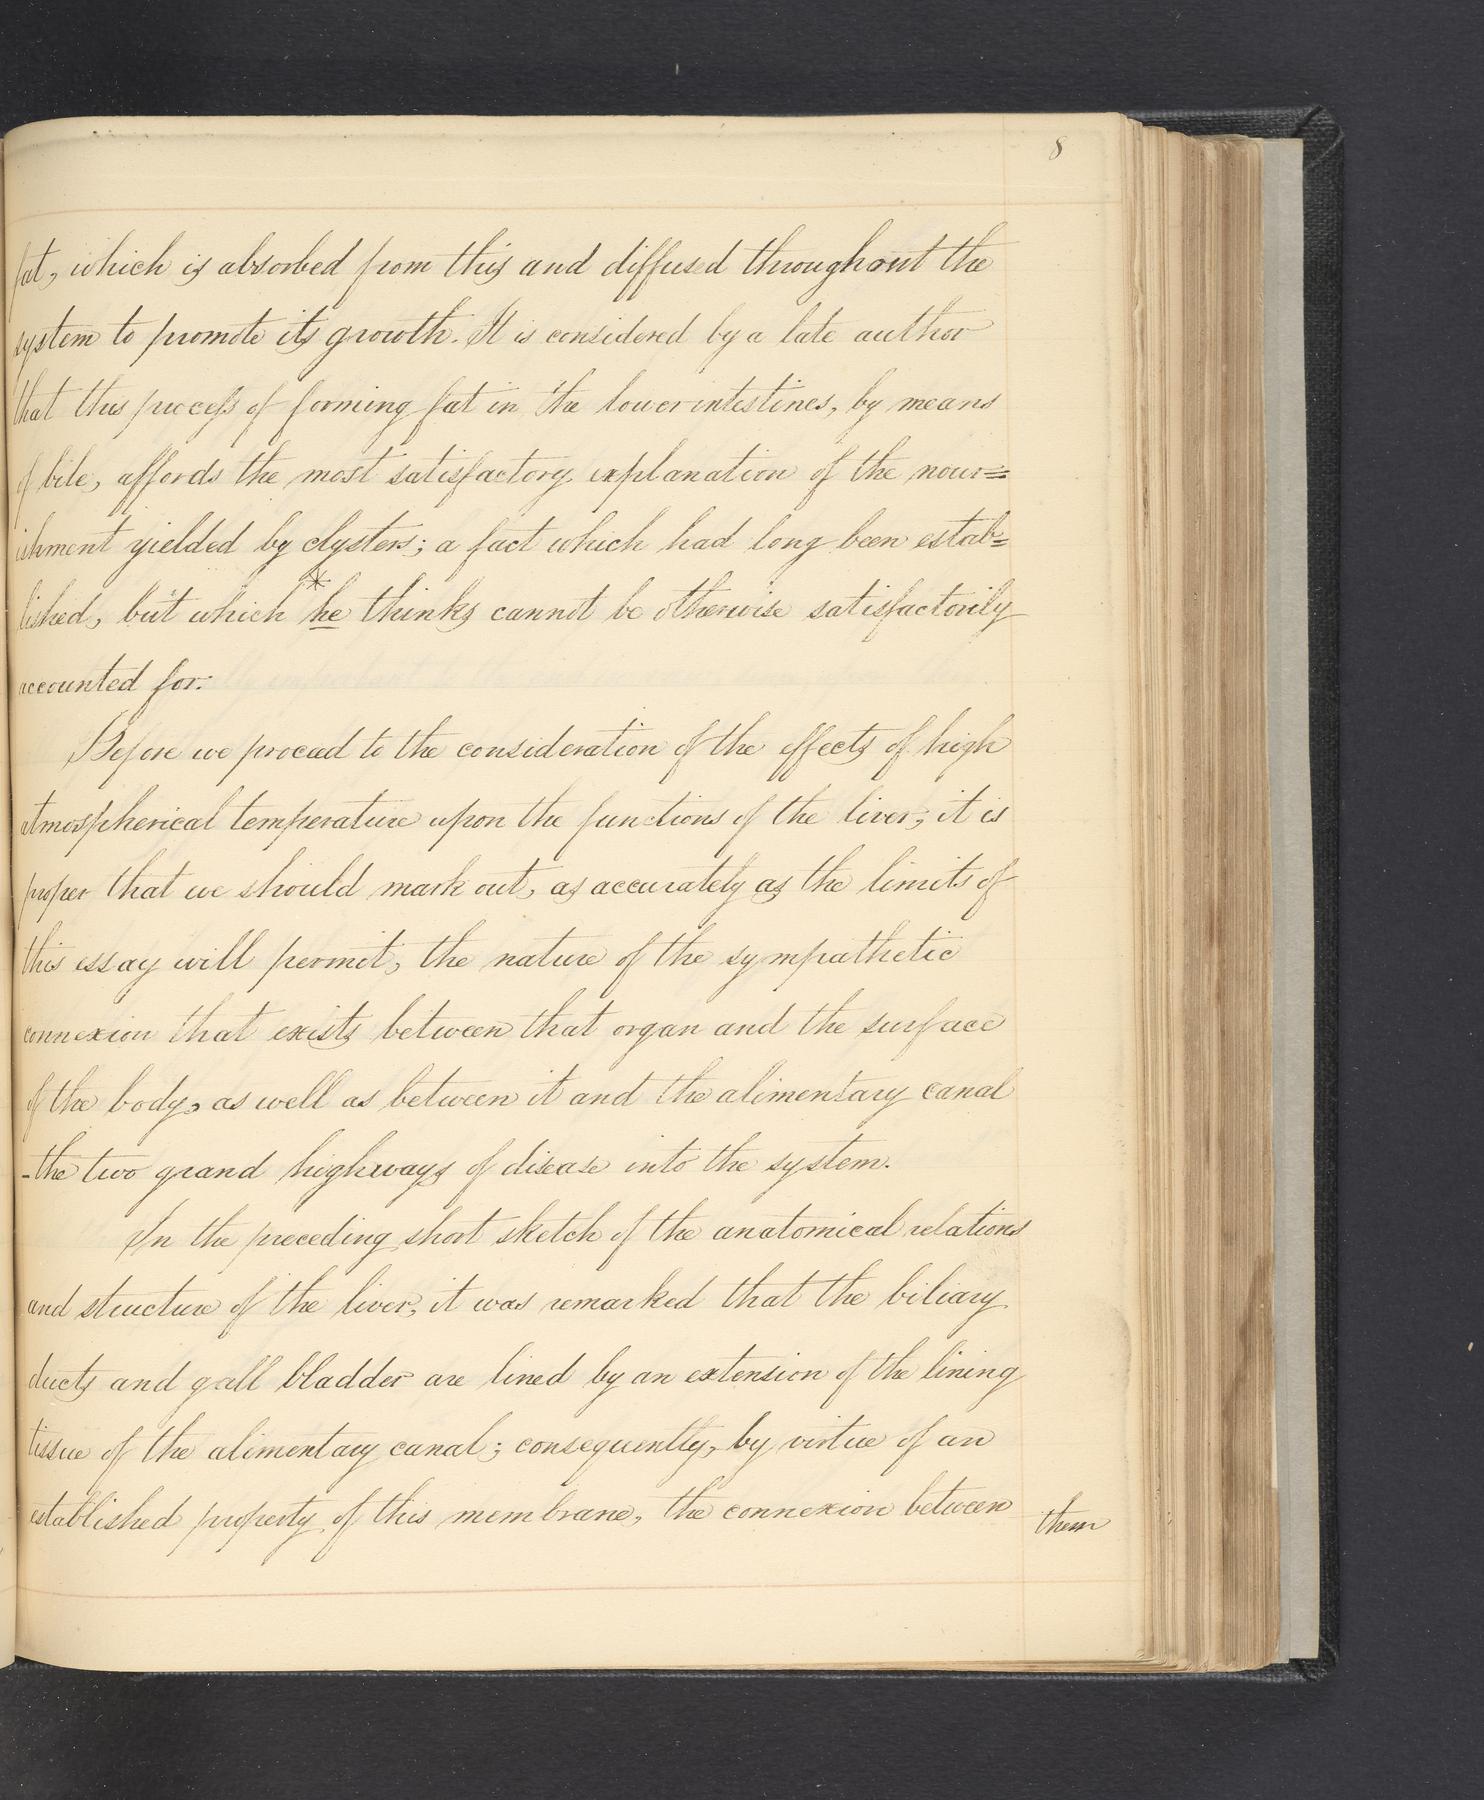 8
fat, which is absorbed from this and diffused throughout the
system to promote its growth. It is considered by a late author
that this process of forming fat in the lower intestines, by means
of bile, affords the most satisfactory explanation of the nour=
ishment yielded by clysters; a fact which had long been estab=
lished, but which *he thinks cannot be otherwise satisfactorily
accounted for.
Before we proceed to the consideration of the effects of high
atmospherical temperature upon the functions of the liver, it is
proper that we should mark out, as accurately as the limits of
this essay will permit, the nature of the sympathetic
connexion that exists between that organ and the surface
of the body, as well as between it and the alimentary canal
-the two grand highways of disease into the system.
In the preceding short sketch of the anatomical relations
and structure of the liver, it was remarked that the biliary
ducts and gall bladder are lined by an extension of the lining
tissue of the alimentary canal; consequently, by virtue of an
established property of this membrane, the connexion between
them